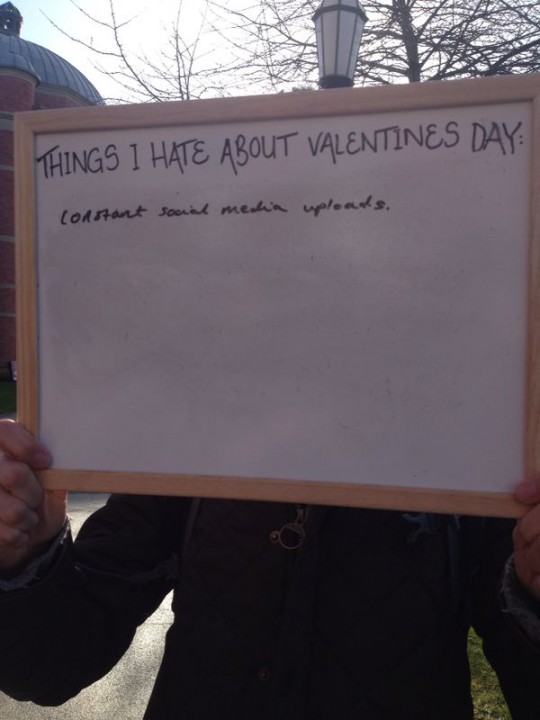 THINGS I HATE ABOUT VALENTINES DAY:
Constant social media uploads.